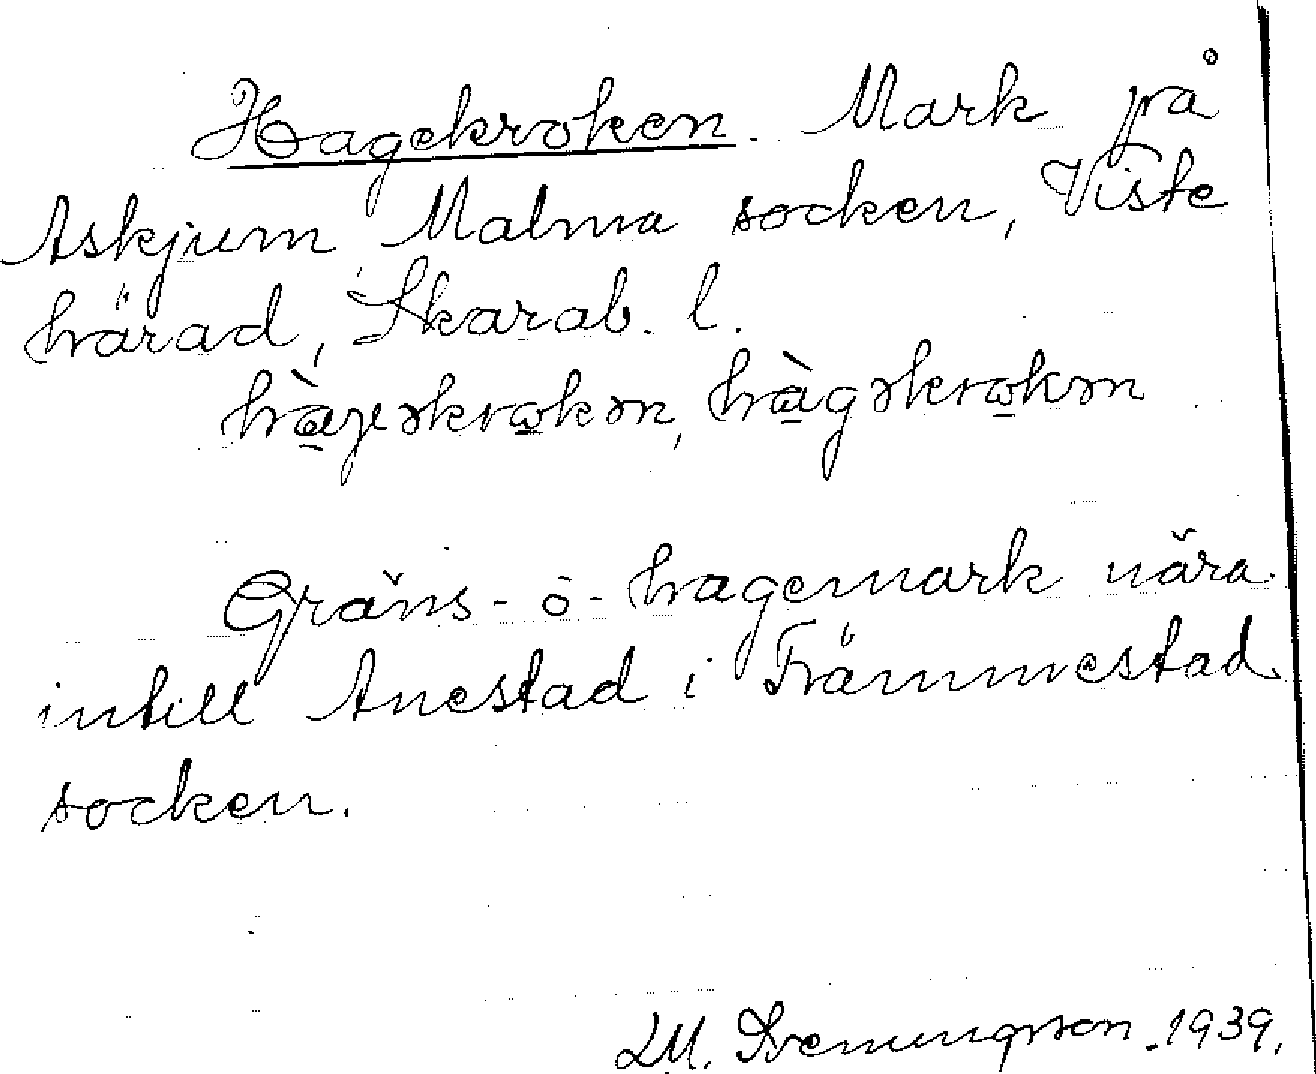 Hagekroken. Mark på
Askjum Malma socken, Viste
härad, Skarab. l.
hàgəkrokən, hàgəkrokən
Gräns- ö- hagemark nära
intill Anestad i Främmestad
socken.
LM. Svenungsson 1939.